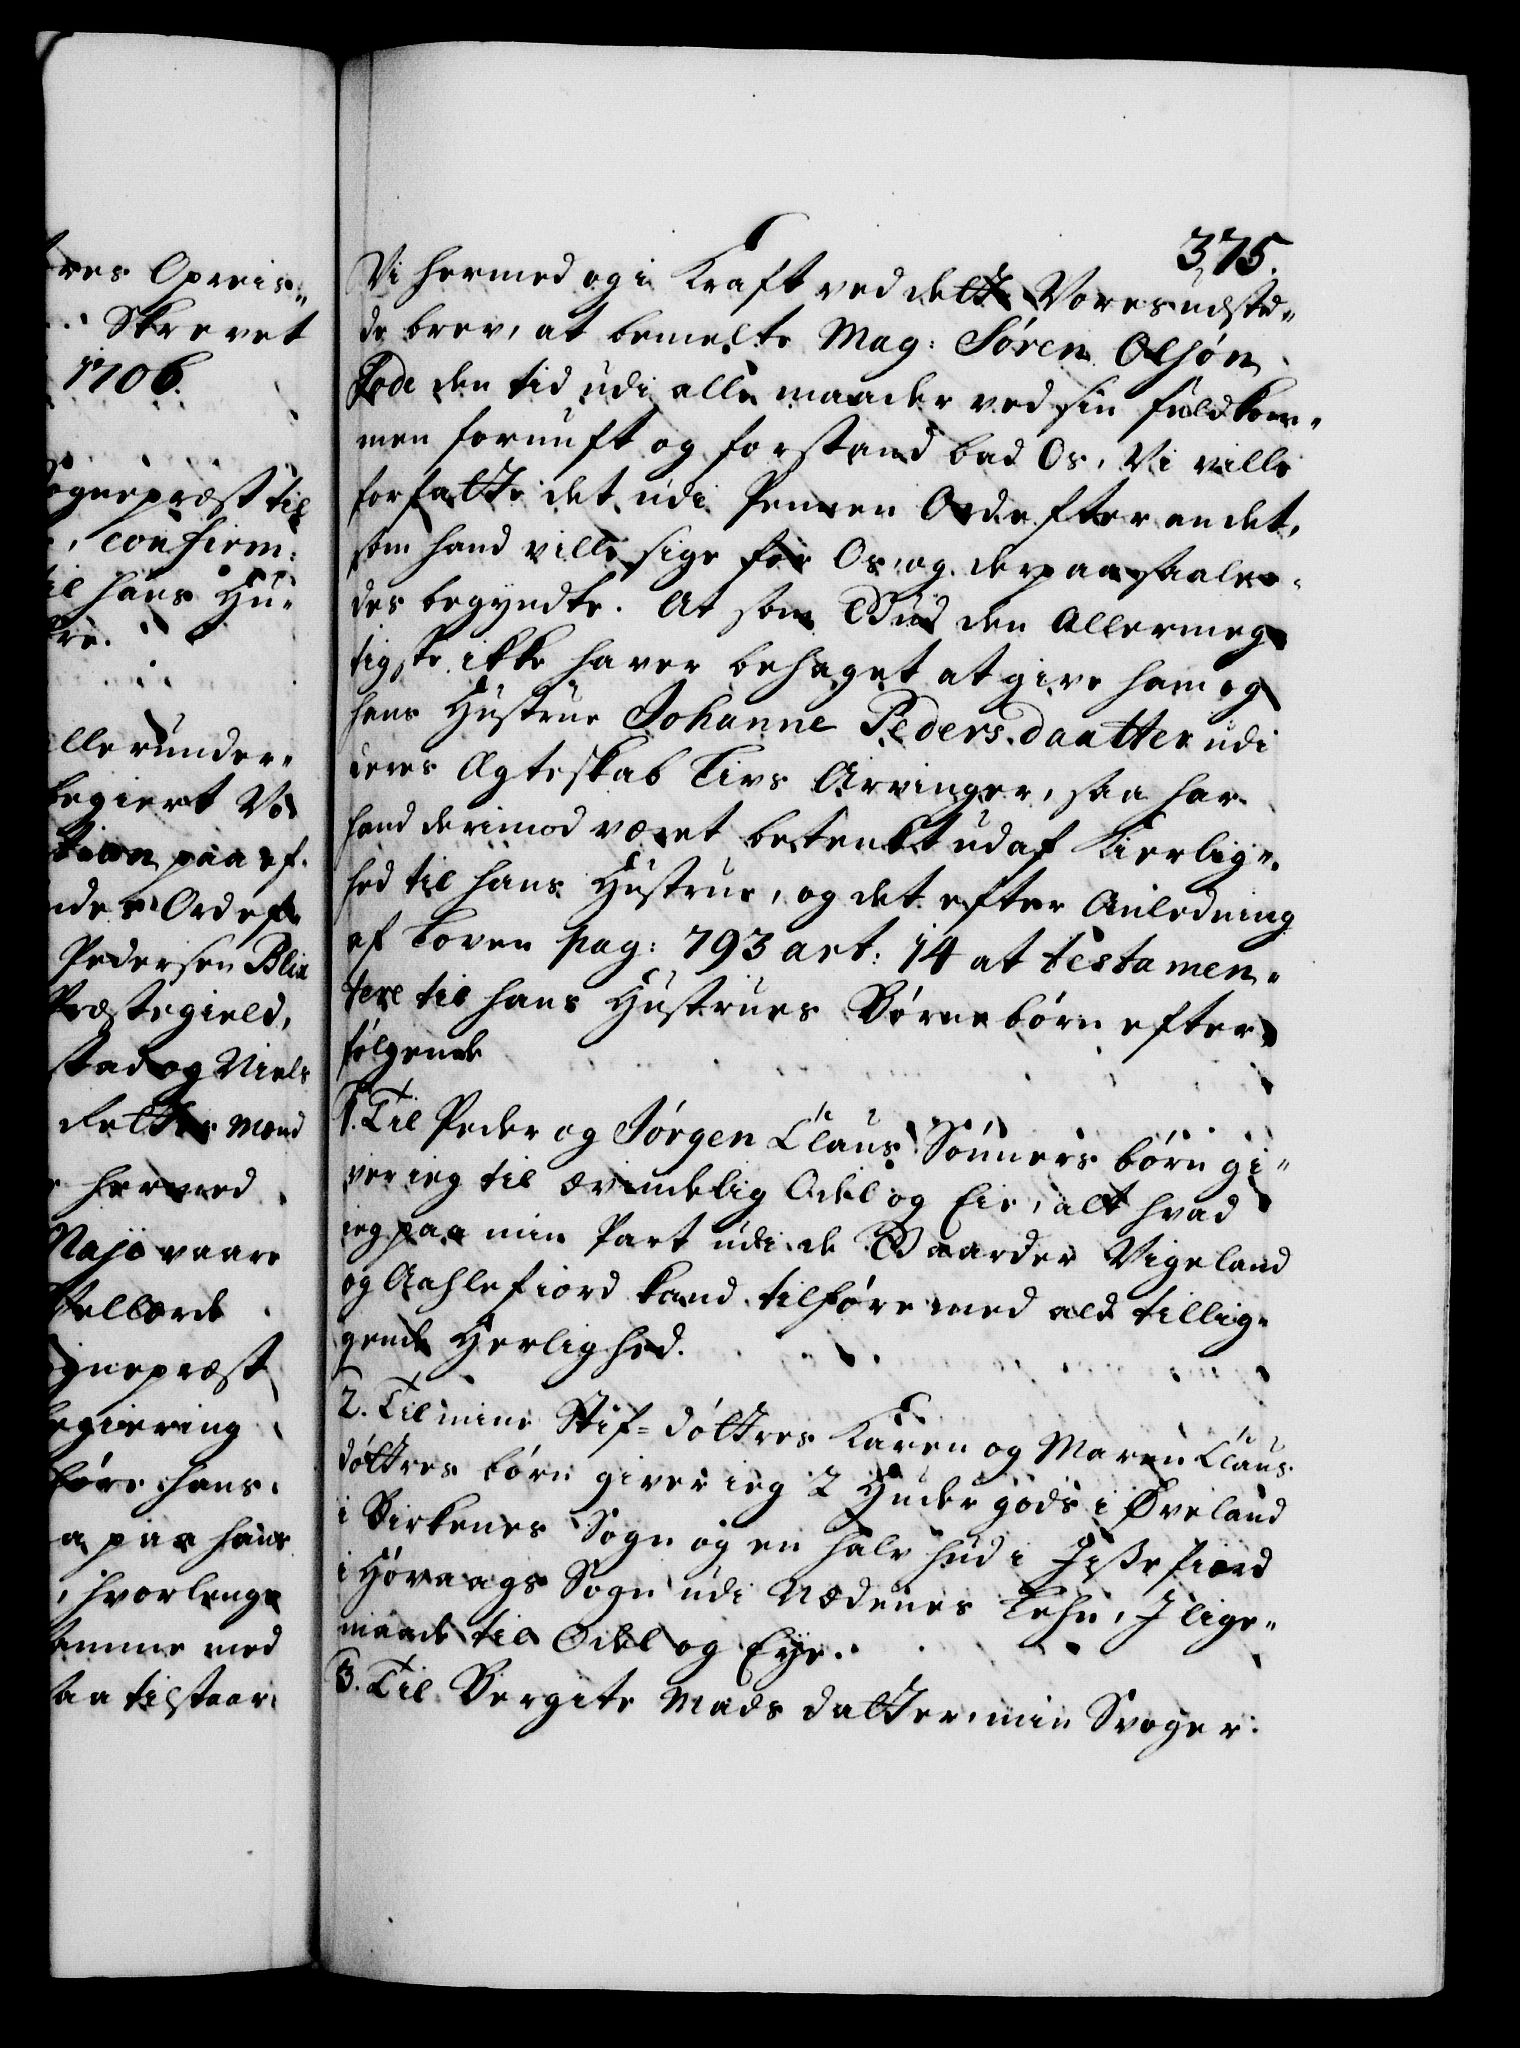 tres Opreis-
Skrevet
1706.
ognepræst til
confirm:
til hans Hu-
tre.
allerunder-
begiert Vo
tion paa ef-
ndes Ord eft
Pedersen Blix
Præstegield,
stad og Niels
dettes mend
hermed
Maji vaare
Vellærde
ognepræst
begiering
høre hans
a paa hans
, hvorlenge
amme med
saa tilstaar
375.
Vi hermed og i Kraft ved dette Vores udsted-
de brev, at bemelte Mag: Søren Olsøn
Gode den tid udi alle maader ved sin fuldkom-
men fornuft og forstand bad Os, Vi ville
forfatte det udi Pennen Ord efter andet,
som hand ville sige for Os, og derpaa saale-
des begyndte. At som Gud den Allermeg-
tigste ikke haver behaget at give ham og
hans Hustrue Johanne Peders daatter udi
deres Ægteskab Livs Arvinger, saa har
hand derimod været betenkt udaf Kierlig-
hed til hans Hustrue, og det efter Anledning
af Loven pag: 793 art: 14 at testamen-
tere til hans Hustrues Børnebørn efter-
følgende
1. Til Peder og Jørgen Claus Sønners børn gi-
ver ieg til ævindelig Odel og Eie, alt hvad
ieg paa min Part udi de Gaarder Vigeland
og Aahlefiord kand tilføre med ald tillig-
gende Herlighed.
2. Til mine Stif-døttres Karen og Maren Claus
døttres børn giver ieg 2 Huder gods i Øveland
i Birkenes Sogn og en halv hud i Isßefiord
i Høvaags Sogn udi Nædenes Lehn, I lige-
maade til Odel og Eye.
3. Til Bergite Mads datter, min Svoger